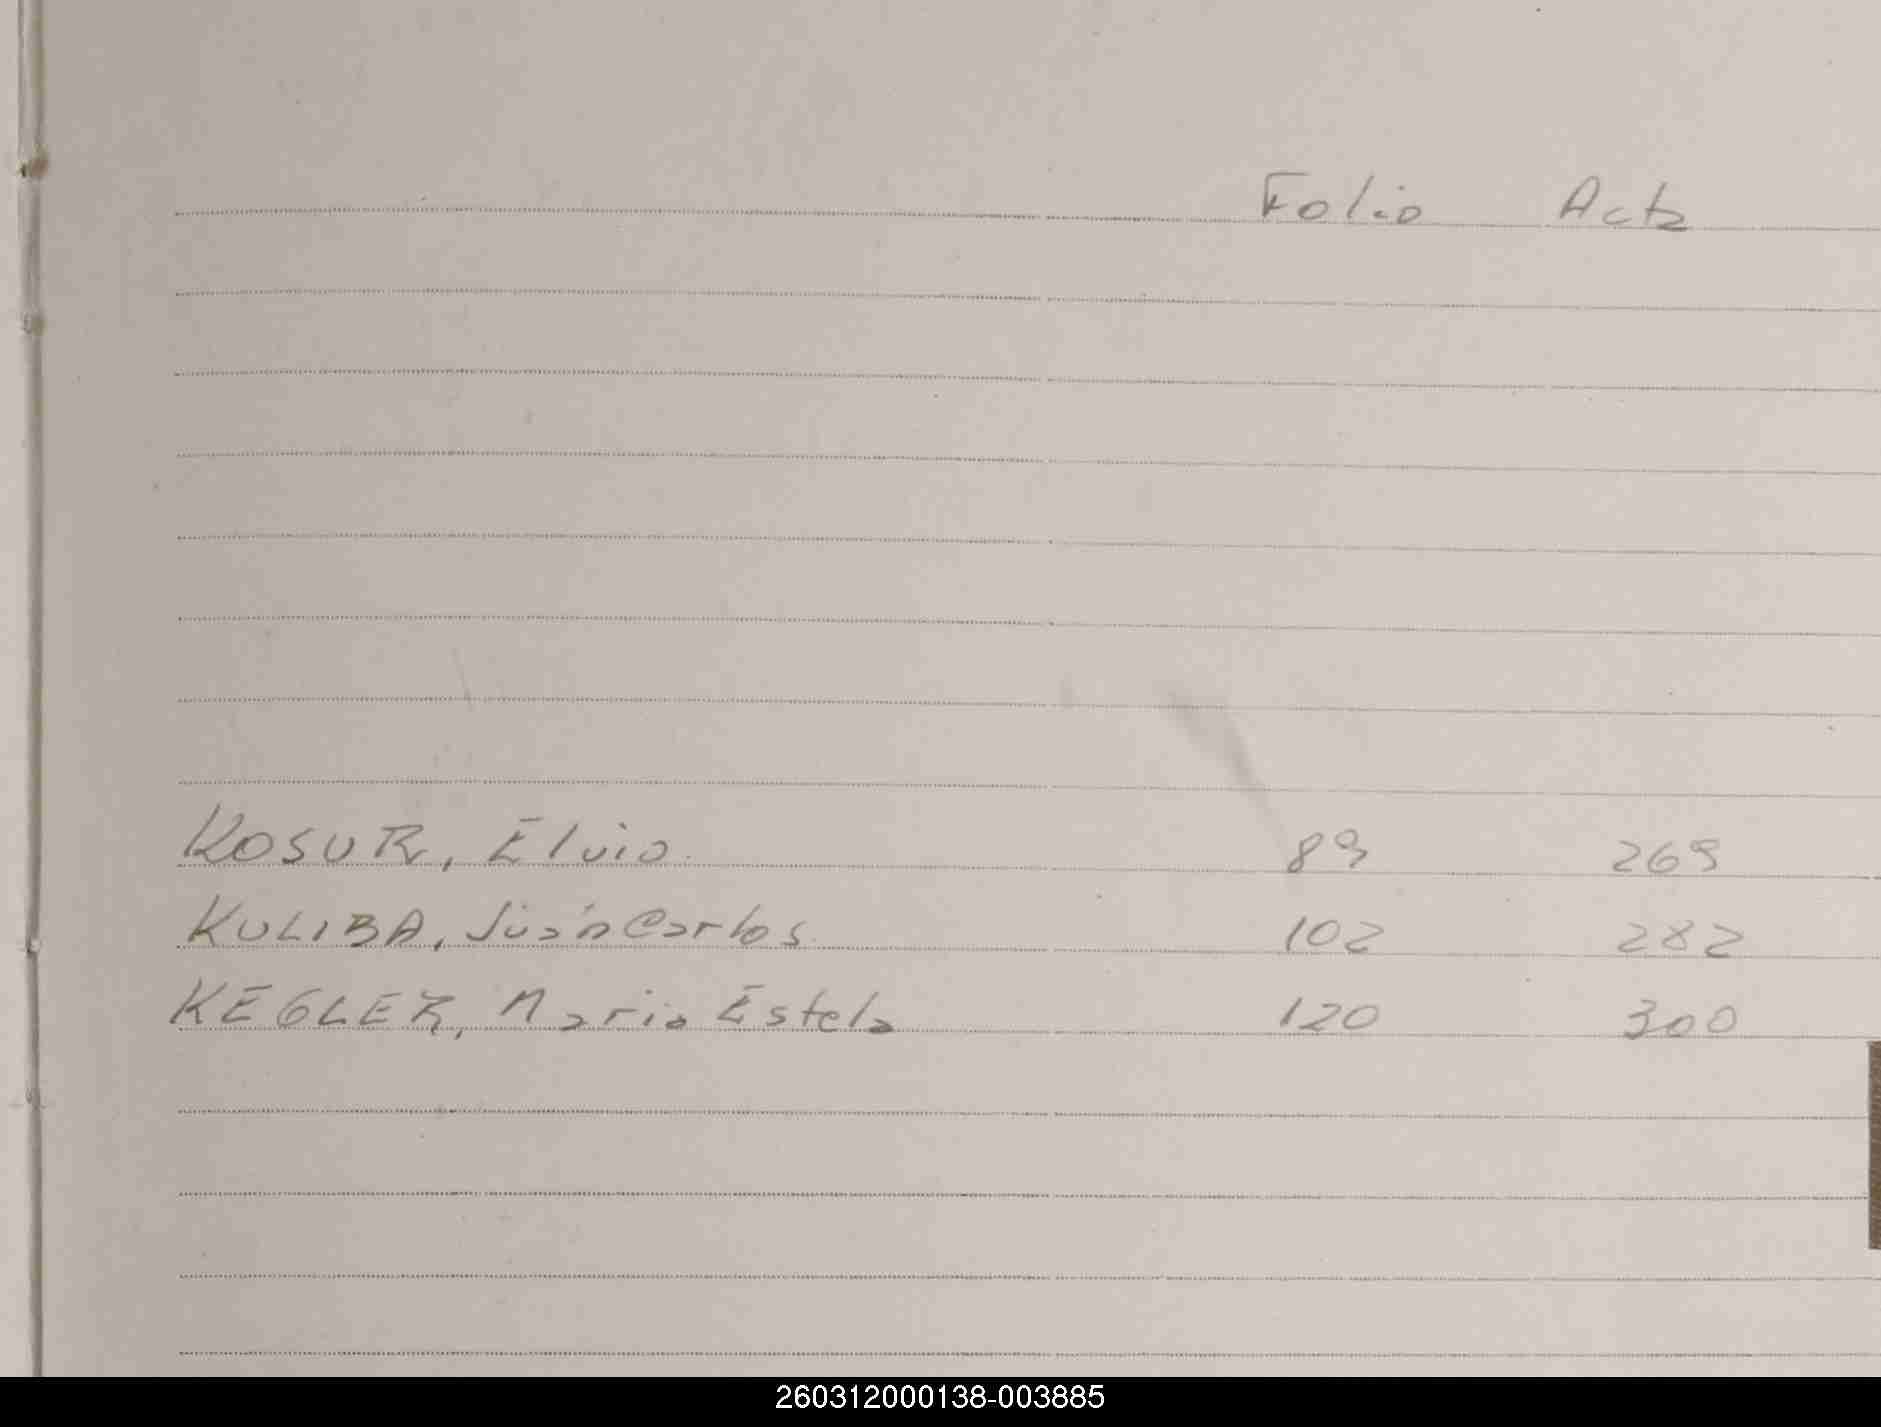 Folio Acta
KOSUR, Elvio. 89 269
KULIBA, Juán Carlos 102 282
KEGLER, Maria Estela 120 300
260312000138-003885